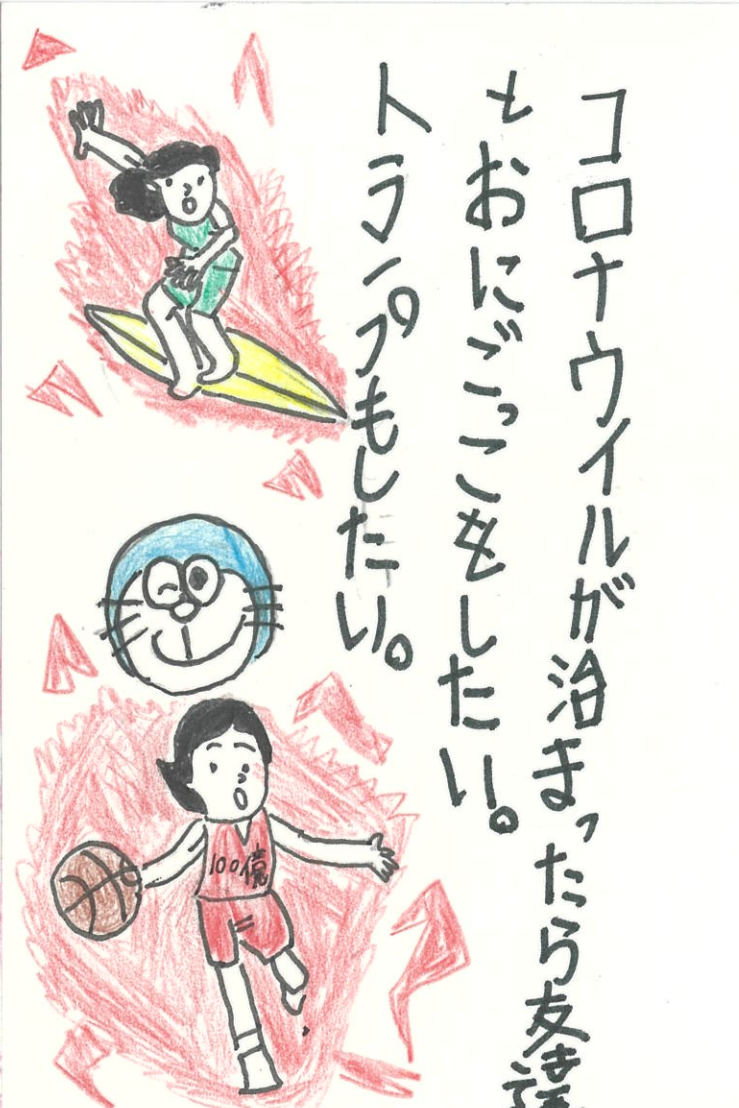 コロナウイルが治まったら友
とおにごっこをしたい。
トランプもしたい。
100億